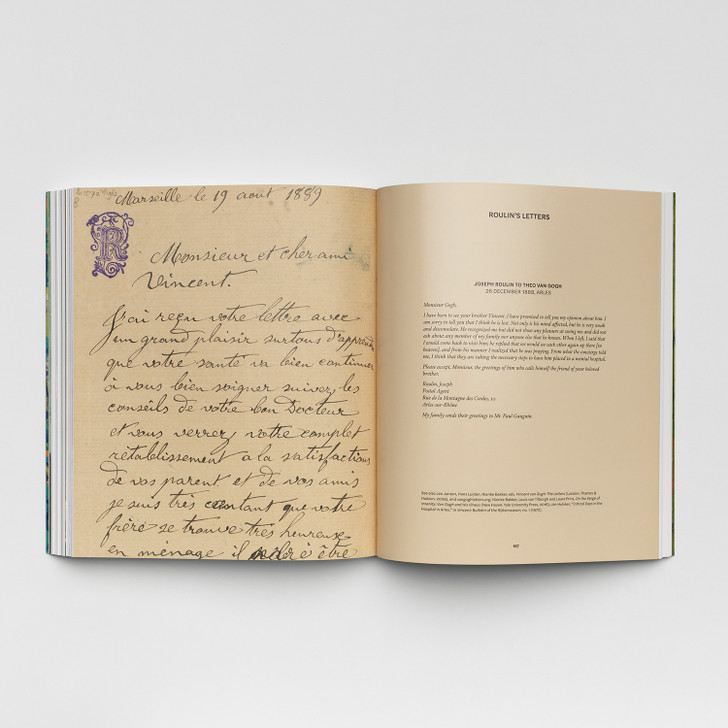 Marseille le 19 aout 1889
R
Monsieur et cher ami
Vincent.
J'ai reçu votre lettre avec
un grand plaisir surtous d'apprendre
que votre santé va bien continuer
à vous bien soigner suivez les
conseils de votre bon Docteur
et vous verrez votre complet
rétablissement a la satisfactions
de vos parent et de vos amis
je suis très contant que votre
frère se trouve très heureuse
en ménage il être
ROULIN'S LETTERS
JOSEPH ROULIN TO THEO VAN GOGH
26 DECEMBER 1888, ARLES
Monsieur Gogh,
I have been to see your brother Vincent. I have promised to tell you my opinion about him. I
am sorry to tell you that I think he is lost. Not only is his mind affected, but he is very weak
and downcast. He recognized me but did not show any pleasure at seeing me and did not
ask about any member of my family nor anyone else that he knows. When I left, I said that
I would come back to visit him; he replied that we would see each other again up there [in
heaven], and from his manner I realized that he was praying. From what the concierge told
me, I think that they are taking the necessary steps to have him placed in a mental hospital.
Please accept, Monsieur, the greetings of him who calls himself the friend of your beloved
brother.
Roulin, Joseph
Postal Agent
Rue de la Montagne des Cordes, 10
Arles-sur-Rhône
My family sends their greetings to Mr. Paul Gauguin.
See also Leo Jansen, Hans Luijten, Nienke Bakker, eds. Vincent van Gogh: The Letters (London: Thames &
Hudson, 2009), and vangoghletters.org; Nienke Bakker, Louis van Tilborgh and Laura Prins, On the Verge of
Insanity: Van Gogh and His Illness
167